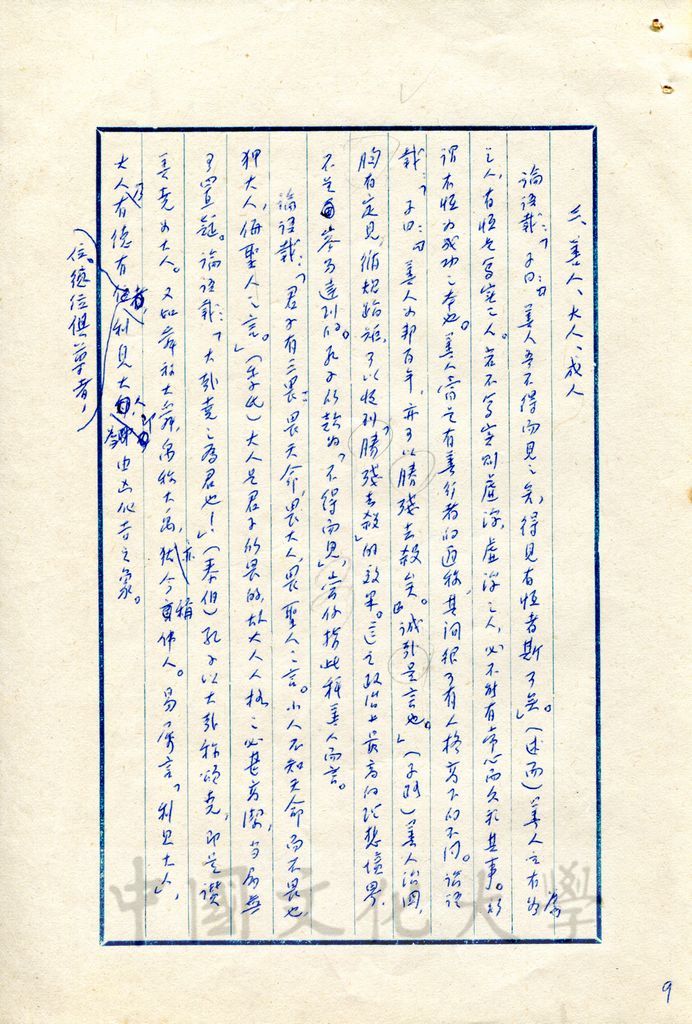 三、善人、大人、成人
論語載:「子曰:善人吾不得而見之矣,得見有恆者斯可矣。」(述而)善人之有為
之人,有恆是篤實之人。若不篤實則虛浮,虛浮之人,必不能有常心而久於其事。所
謂有恆為成功之本也。善人當是有善行者的通稱,其間很可有人格高下的不同。論語
載:「子曰:善人為邦百年,亦可以勝殘去殺矣。誠哉是言也。」(子路)善人治國,
胸有定見,循規蹈矩,可以收到「勝殘去殺」的效果。這是政治上最高的理想境界,
不是容易達到的。孔子所說的「不得而見」,當係指此種善人而言。
論語載:「君子有三畏:畏天命,畏大人,畏聖人之言。小人不知天命而不畏也,
狎大人,侮聖人之言。」(季氏)大人是君子所畏的,故大人人格之必甚高潔,當屬無
可置疑。論語載:「大哉堯之為君也!」(泰伯)孔子以大哉稱頌堯,即是讚
美堯為大人。又如舜稱大舜,禹稱大禹,猶今亦稱偉人。易屢言「利見大人」,
大人乃有德有位者,利見大人,即為由凶化吉之象。
(德位俱尊者)
9
中國文化大學